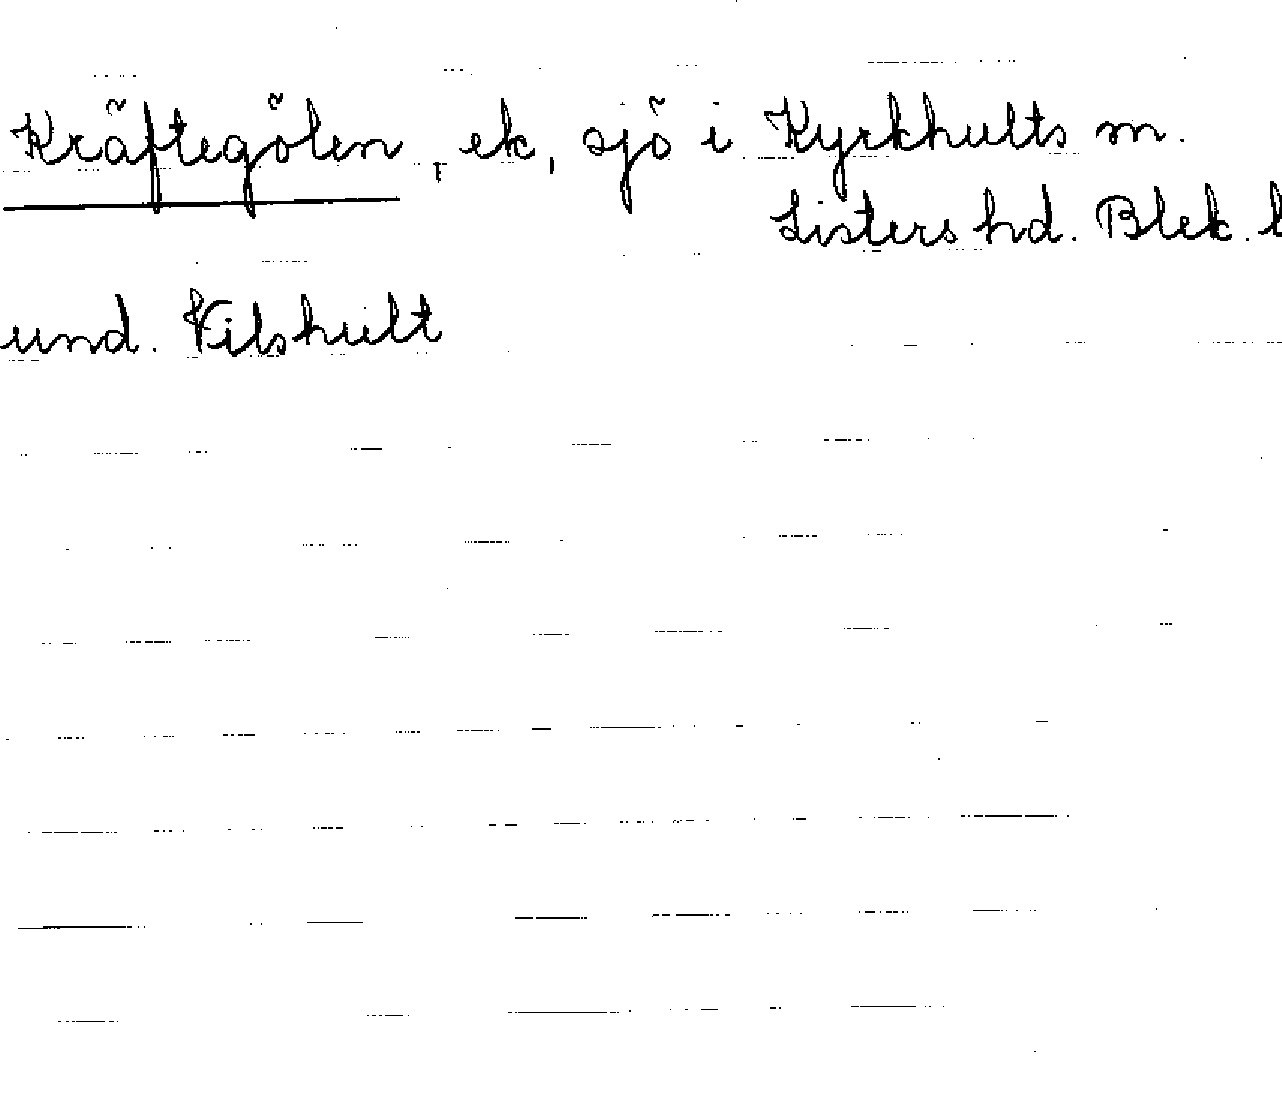 Kräftegölen, ek, sjö i Kyrkhults m.
Listers hd. Blek. l
und. Vilshult